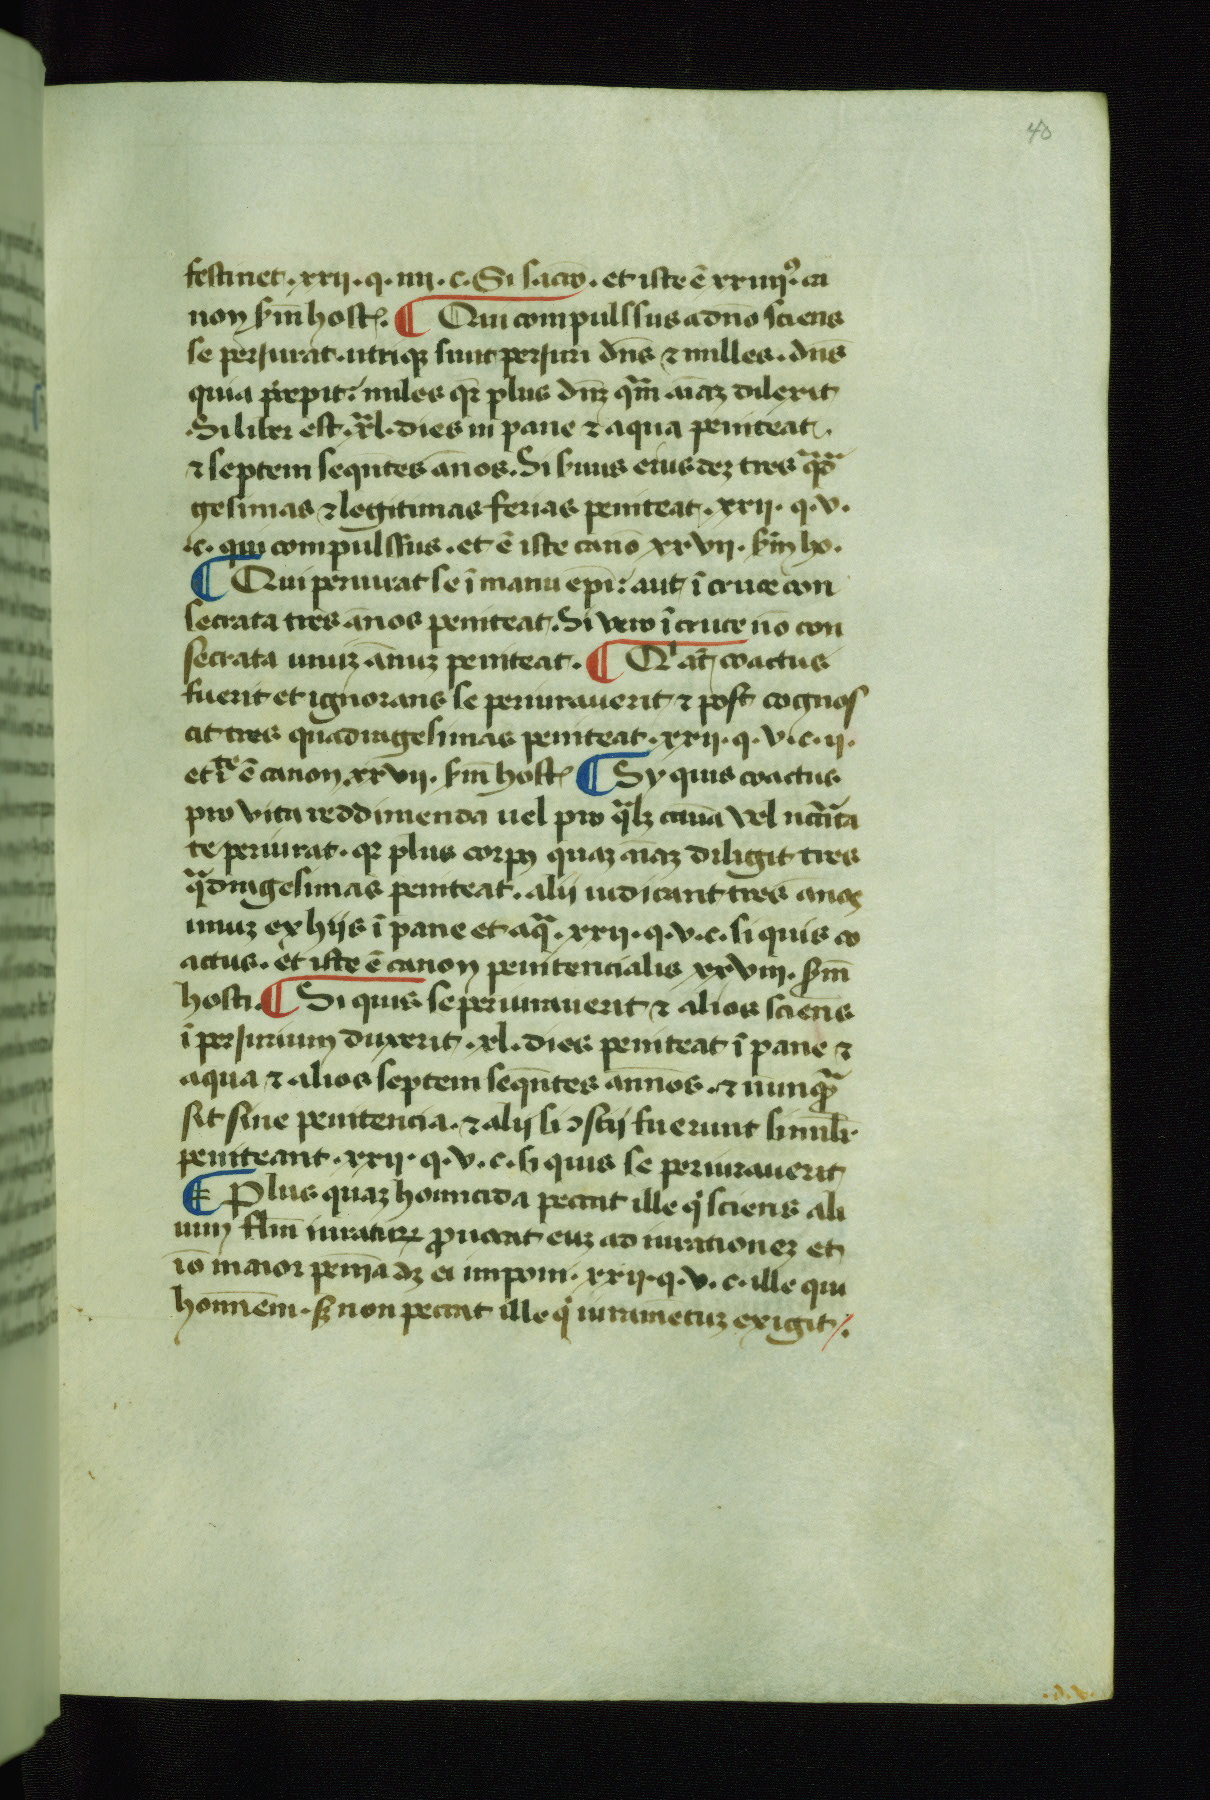 40
festinet · xxii · q · iiii · c · Si sacio᷒ · et iste ē xxiiij⁹ · ca
non scḋm host̄ · ¶ Qui compulssus a dn̄o sciens
se perjurat · utriqꝫ sunt perjuri dn̄s ⁊ milles · dn̄s
quia p̄cepit : miles qꝛ plus dn̄ꝫ qᵃm aīaꝫ dilexit
· Si liber est · xl · dies in pane ⁊ aqua peniteat
⁊ septem seqn̄tes ān̄os · Si s̄uus eiusdeꝫ tres qᵃdᵃ
gesimas ⁊ legitimas ferias peniteat · xxii · q · v ·
· c · qui compulssus · et ē iste canō xxvii · scḋm ho ·
¶ Qui periurat se ī manu epī : aut ī cruce con
secrata tres ān̄os peniteat · Si vero ī cruce nō con
secrata unuꝫ ān̄uꝫ peniteat · ¶ Qⁱ aūt coactus
fuerit et ignorans se periurauerit ⁊ post cognos
cit tres quadragesimas peniteat · xxii · q · v · c · ii ·
et iᵗᵉ ē canon xxvii · scḋm host̄ ¶ Sy quis coactus
pro vita reddimenda uel pro qᵃlꝫ causa vel nc̄cita
te periurat · qꝛ plus corpꝯ quaꝫ aīaꝫ diligit tres
qᵃdragesimas peniteat · alii iudicant tres ān̄os
unuꝫ ex hijs ī pane et aqᵃ · xxii · q · v · c · si quis co
actus · et iste ē canon penitencialis xxviii · scḋm
hosti · ¶ Si quis se periurauerit ⁊ alios sciens
ī perjurium duxerit · xl · dies peniteat ī pane ⁊
aqua ⁊ alios septem seqn̄tes ann̄os · ⁊ nunqᵃ
sit sine penitencia · ⁊ alij si ꝯscij fuerunt simil̄r
peniteant · xxii · q · v · c · si quis se periurauerit
¶ Plus quaꝫ homicida peccat ille qⁱ sciens ali
um flm̄ iuratuꝝ ꝓuocat euꝫ ad iurationeꝫ et
iō maior penīa dꝫ ei imponi · xxii · q · v · c · ille qui
homīnem · sꝫ non peccat ille qⁱ iuramētuꝫ exigit ·